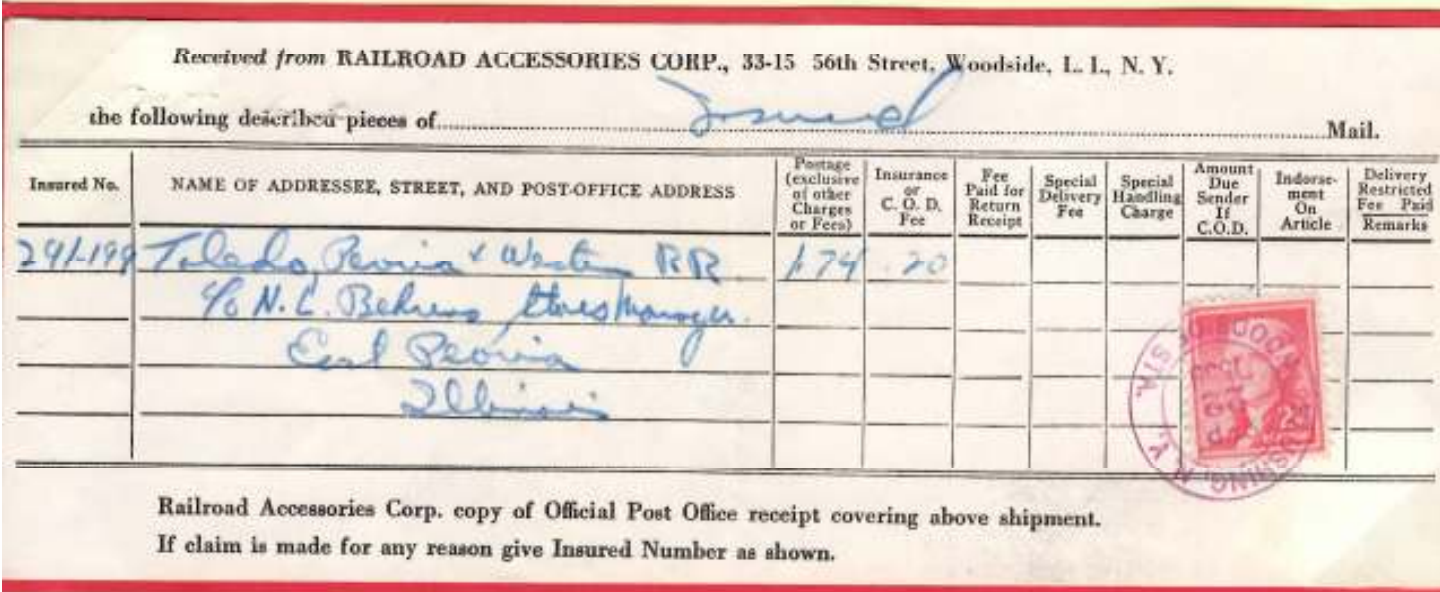 Received from RAILROAD ACCESSORIES CORP., 33-15 56th Street, Woodside, L. I., N. Y.
the following described pieces of Insured Mail.
Insured No. NAME OF ADDRESSEE, STREET, AND POST-OFFICE ADDRESS Postage (exclusive of other Charges or Fees) Insurance or C. O. D. Fee Fee Paid for Return Receipt Special Delivery Fee Special Handling Charge Amount Due Sender If C.O.D. Indorse-ment On Article Delivery Restricted Fee Paid Remarks
Toledo, Peoria & Western RR 1.74 .20
c/o N. L. Behrens Stores Manager
East Peoria
Illinois
WOODSIDE STA.
FLUSHING, N. Y.
Railroad Accessories Corp. copy of Official Post Office receipt covering above shipment.
If claim is made for any reason give Insured Number as shown.